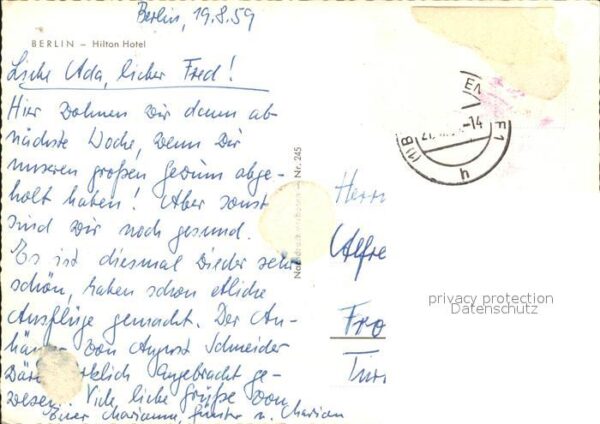 Berlin, 19.8.59
BERLIN – Hilton Hotel
Liebe Ada, lieber Fred!
Hier wohnen wir dann ab
nächste Woche, wenn wir
unseren großen Gewinn abge-
holt haben! Aber sonst
sind wir noch gesund.
Es ist diesmal wieder sehr
schön, haben schon etliche
Ausflüge gemacht. Der An-
von August Schneider
angebracht ge-
wesen. Viele liebe Grüße von
Euer Marianne, Günter u. Marian
Nr. 245
Herrn
Alfre
Fro
Tur
(1) B
F 1
-14
h
privacy protection
Datenschutz